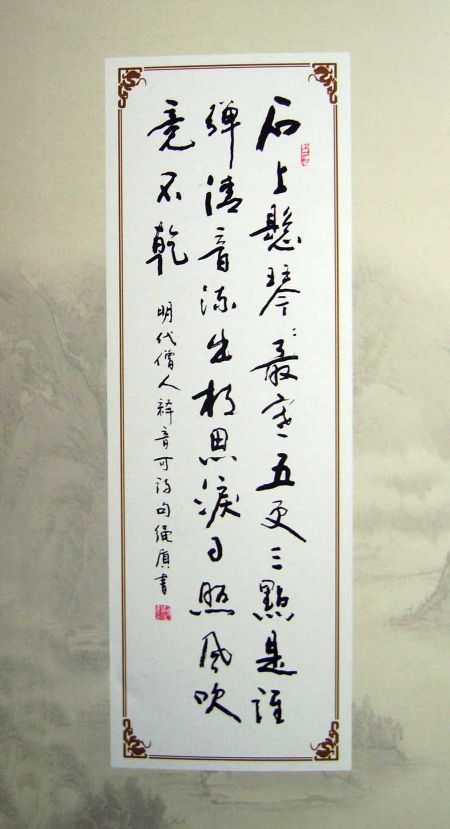 石上懸琴々最寒五更三點是誰
彈清音流出相思淚月照風吹
竟不乾
明代僧人釋音可詩句書